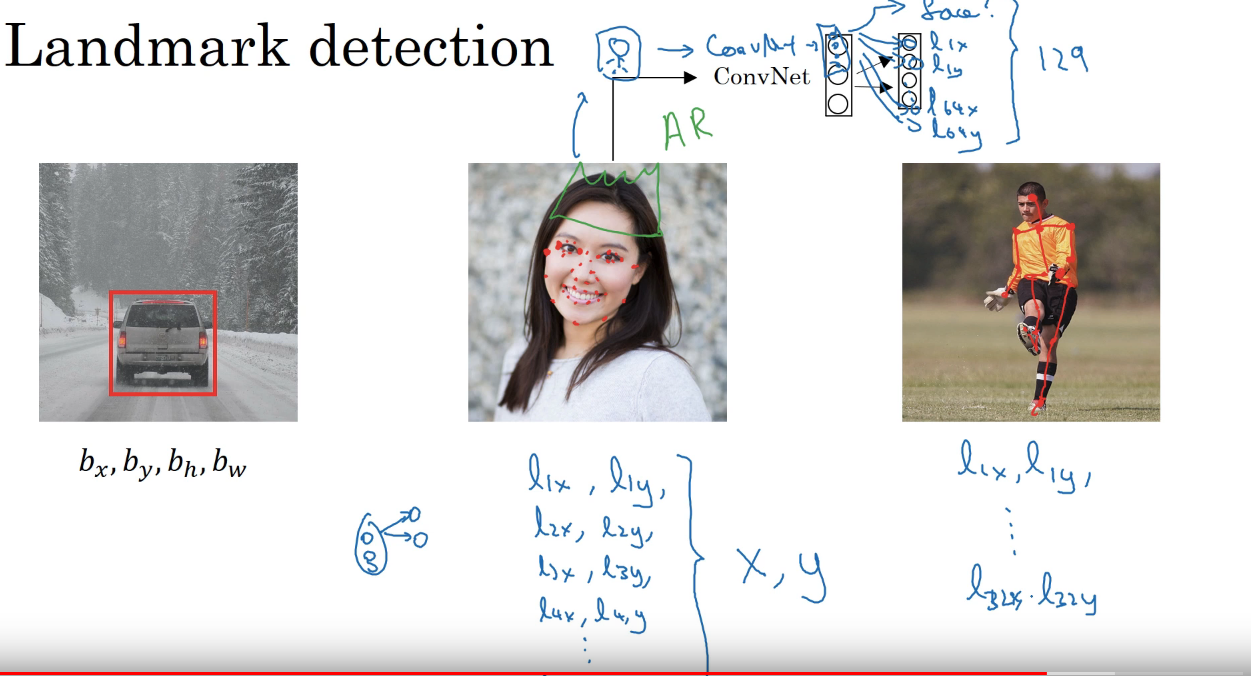 Landmark detection
ConvNet
face?
ConvNet
l1x
l1y
l64x
l64y
129
AR
bx, by, bh, bw
l1x, l1y,
l2x, l2y,
l3x, l3y,
l4x, l4y
⋮
x, y
l1x, l1y,
⋮
l32x, l32y